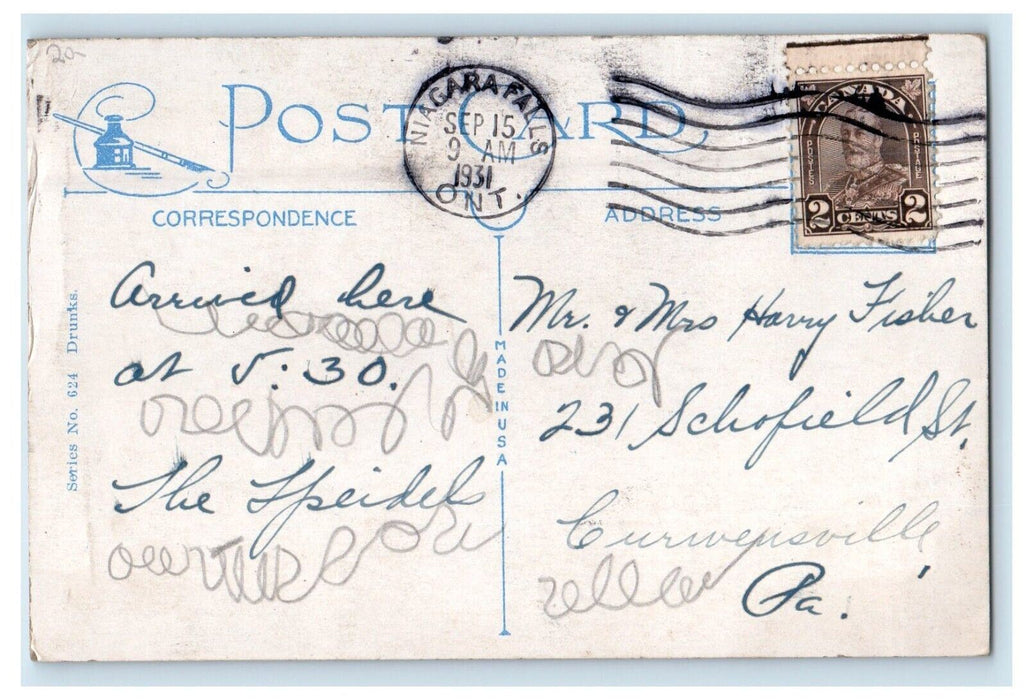 20-
POST CARD,
NIAGARA FALLS
SEP 15
9 AM
1931
ONT.
CANADA
POSTES
POSTAGE
2 CENTS 2
CORRESPONDENCE
ADDRESS
Series No. 624 Drunks.
Arrived here
at 5:30.
The Speidels
MADE IN USA
Mr. & Mrs Harry Fisher
231 Schofield St.
Curwensville,
Pa.